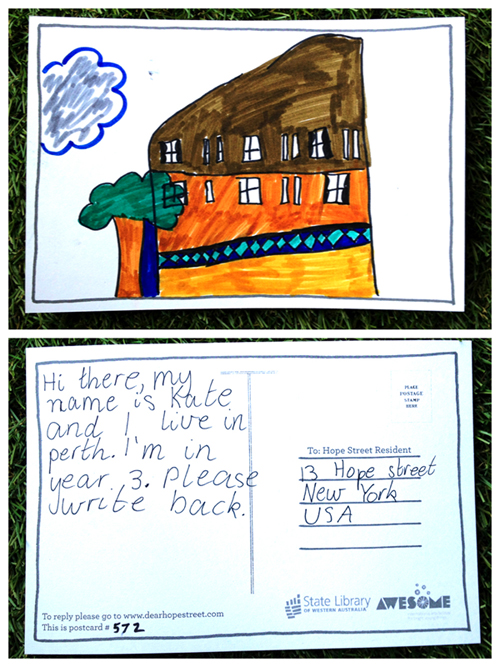 Hi there, my
name is Kate
and I live in
perth. I'm in
year 3. Please
write back.
PLACE
POSTAGE
STAMP
HERE
To: Hope Street Resident
13 Hope street
New York
USA
To reply please go to www.dearhopestreet.com
This is postcard # 572
State Library
OF WESTERN AUSTRALIA
AWESOME